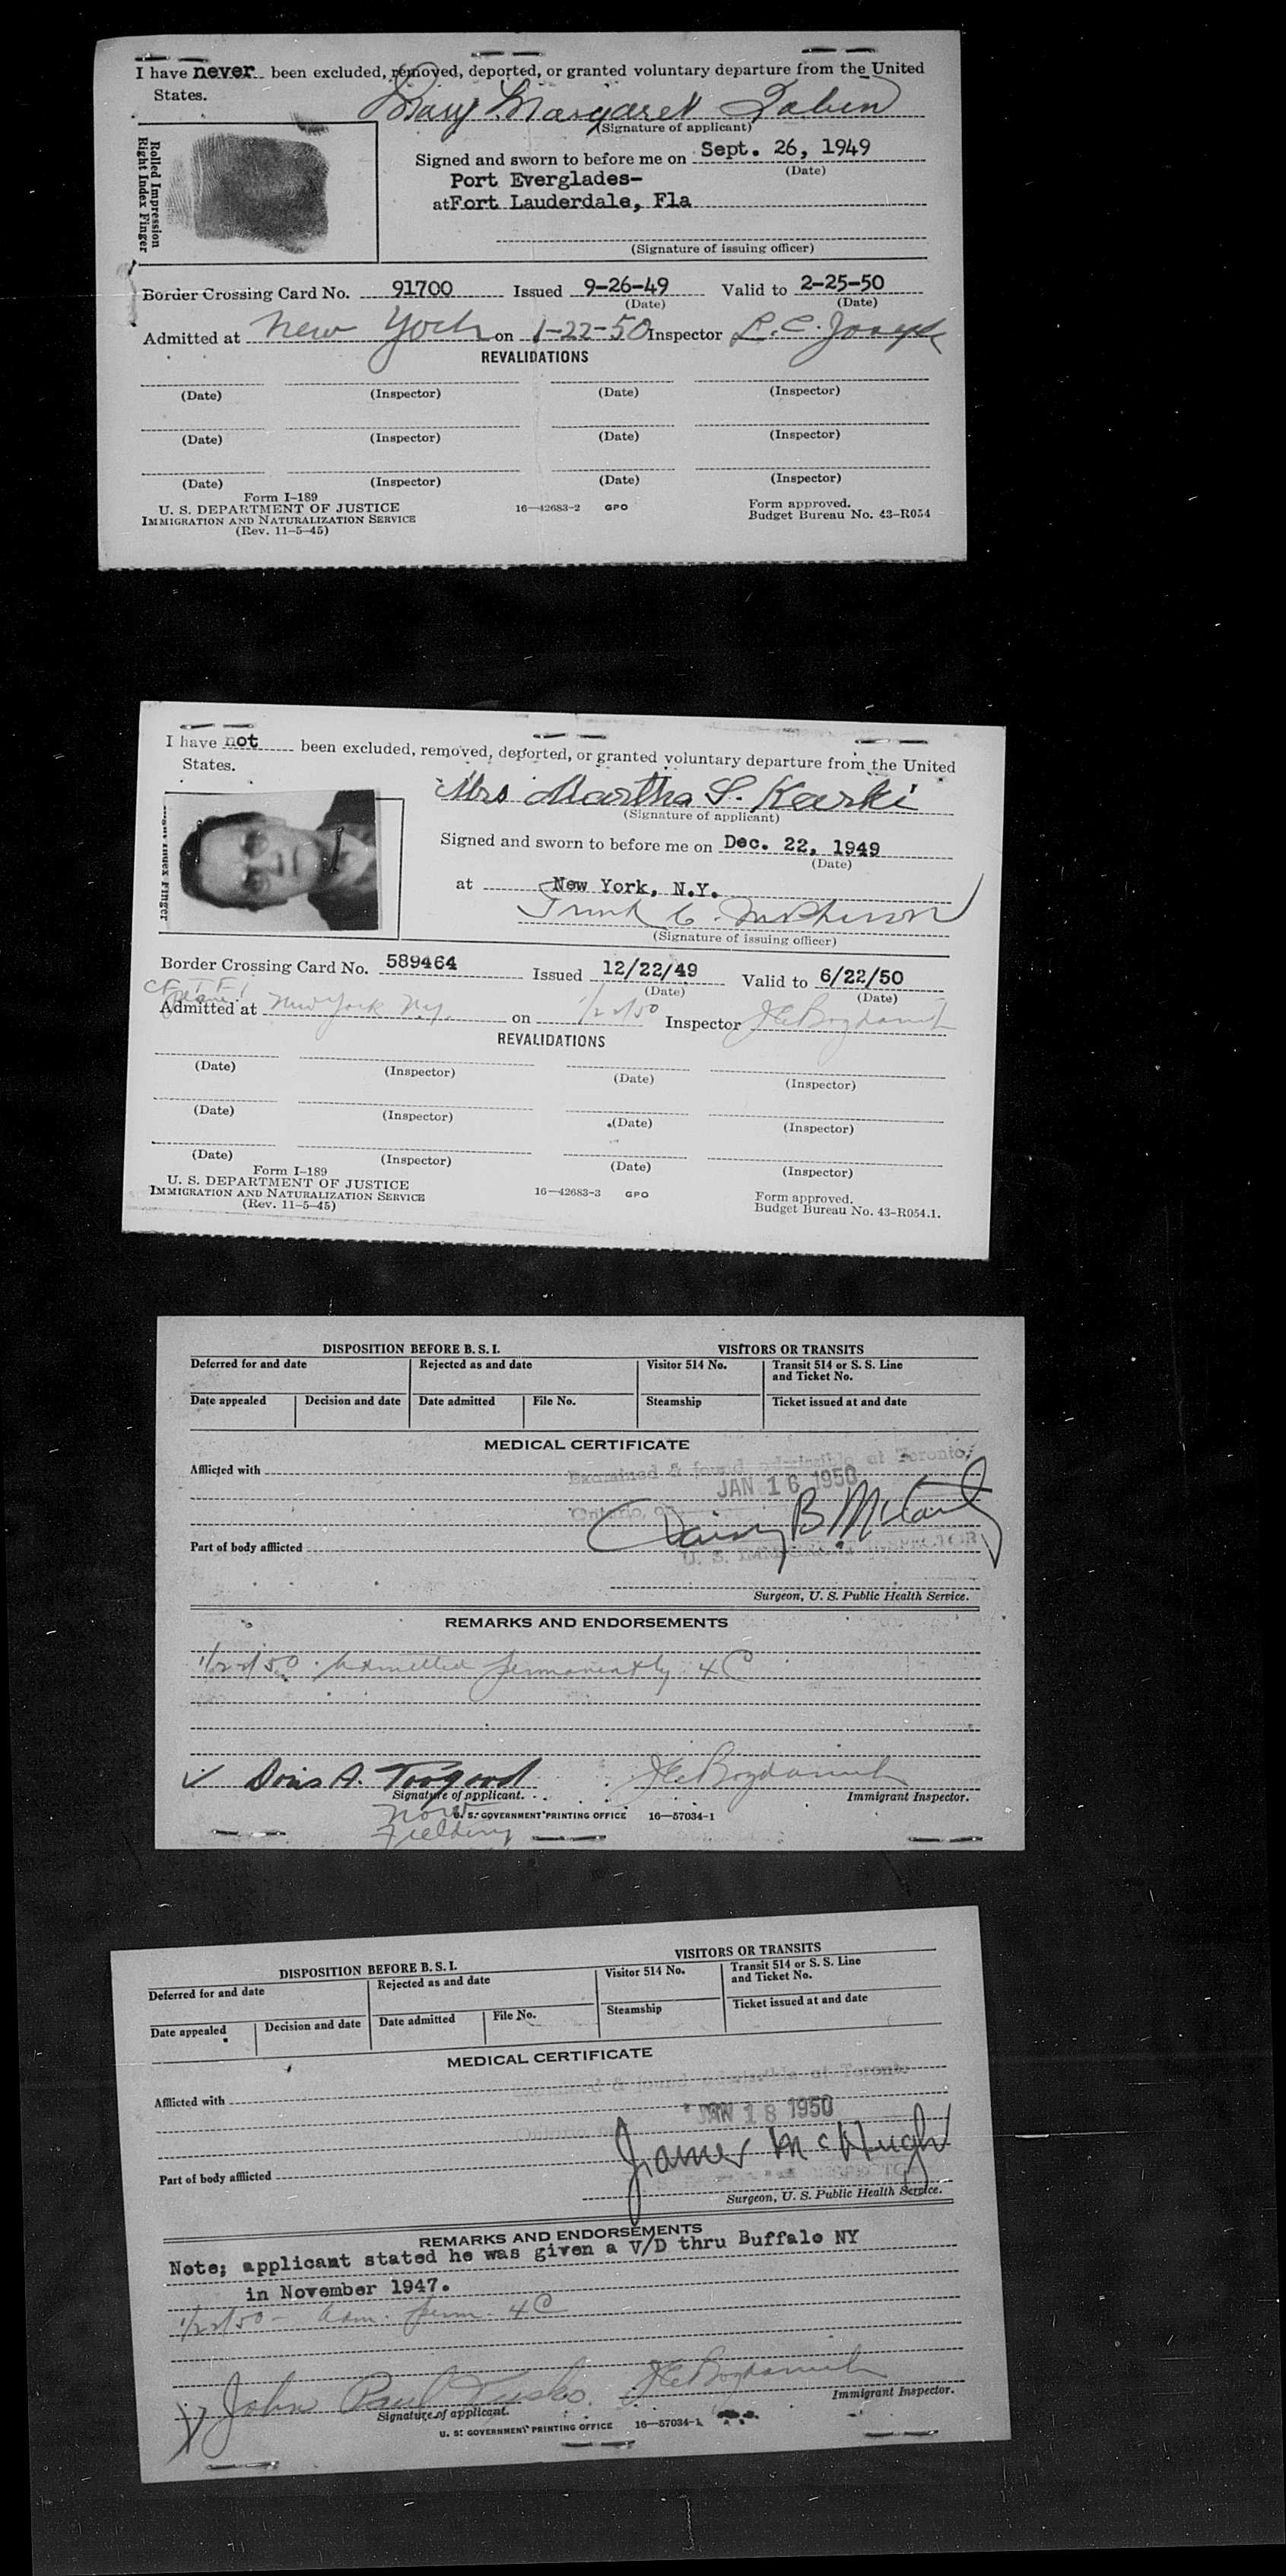 I have never been excluded, removed, deported, or granted voluntary departure from the United
States.
Mary Margaret
(Signature of applicant)
Rolled Impression
Right Index Finger
Signed and sworn to before me on Sept. 26, 1949
(Date)
Port Everglades-
at Fort Lauderdale, Fla
(Signature of issuing officer)
Border Crossing Card No. 91700 Issued 9-26-49 Valid to 2-25-50
(Date) (Date)
Admitted at New York on 1-22-50 Inspector L. C. Joseph
REVALIDATIONS
(Date) (Inspector) (Date) (Inspector)
(Date) (Inspector) (Date) (Inspector)
(Date) (Inspector) (Date) (Inspector)
Form I-189
U. S. DEPARTMENT OF JUSTICE
IMMIGRATION AND NATURALIZATION SERVICE
(Rev. 11-5-45)
16—42683-2 GPO
Form approved.
Budget Bureau No. 43-R054
I have not been excluded, removed, deported, or granted voluntary departure from the United
States.
Mrs Martha S. Karski
(Signature of applicant)
Index Finger
Signed and sworn to before me on Dec. 22, 1949
(Date)
at New York, N.Y.
Frank C. McPherson
(Signature of issuing officer)
Border Crossing Card No. 589464 Issued 12/22/49 Valid to 6/22/50
(Date) (Date)
Admitted at New York NY. on 1/22/50 Inspector
REVALIDATIONS
(Date) (Inspector) (Date) (Inspector)
(Date) (Inspector) (Date) (Inspector)
(Date) (Inspector) (Date) (Inspector)
Form I-189
U. S. DEPARTMENT OF JUSTICE
IMMIGRATION AND NATURALIZATION SERVICE
(Rev. 11-5-45)
16—42683-3 GPO
Form approved.
Budget Bureau No. 43-R054.1.
DISPOSITION BEFORE B. S. I. VISITORS OR TRANSITS
Deferred for and date Rejected as and date Visitor 514 No. Transit 514 or S. S. Line
and Ticket No.
Date appealed Decision and date Date admitted File No. Steamship Ticket issued at and date
MEDICAL CERTIFICATE
Afflicted with
Examined & found admissible at Toronto,
JAN 16 1950
Ontario, on
Part of body afflicted
U. S. IMMIGRANT INSPECTOR
Surgeon, U. S. Public Health Service.
REMARKS AND ENDORSEMENTS
1/22/50 . Admitted permanently 4 C
Doris A. Toogood
Signature of applicant. Immigrant Inspector.
now
U. S. GOVERNMENT PRINTING OFFICE 16—57034-1
Fielding
DISPOSITION BEFORE B. S. I. VISITORS OR TRANSITS
Deferred for and date Rejected as and date Visitor 514 No. Transit 514 or S. S. Line
and Ticket No.
Date appealed Decision and date Date admitted File No. Steamship Ticket issued at and date
MEDICAL CERTIFICATE
Afflicted with
Examined & found admissible at Toronto
JAN 18 1950
James McHugh
Part of body afflicted
Surgeon, U. S. Public Health Service.
REMARKS AND ENDORSEMENTS
Note; applicant stated he was given a V/D thru Buffalo NY
in November 1947.
1/22/50 - Adm. Perm. 4 C
John Paul
Signature of applicant. Immigrant Inspector.
U. S. GOVERNMENT PRINTING OFFICE 16—57034-1